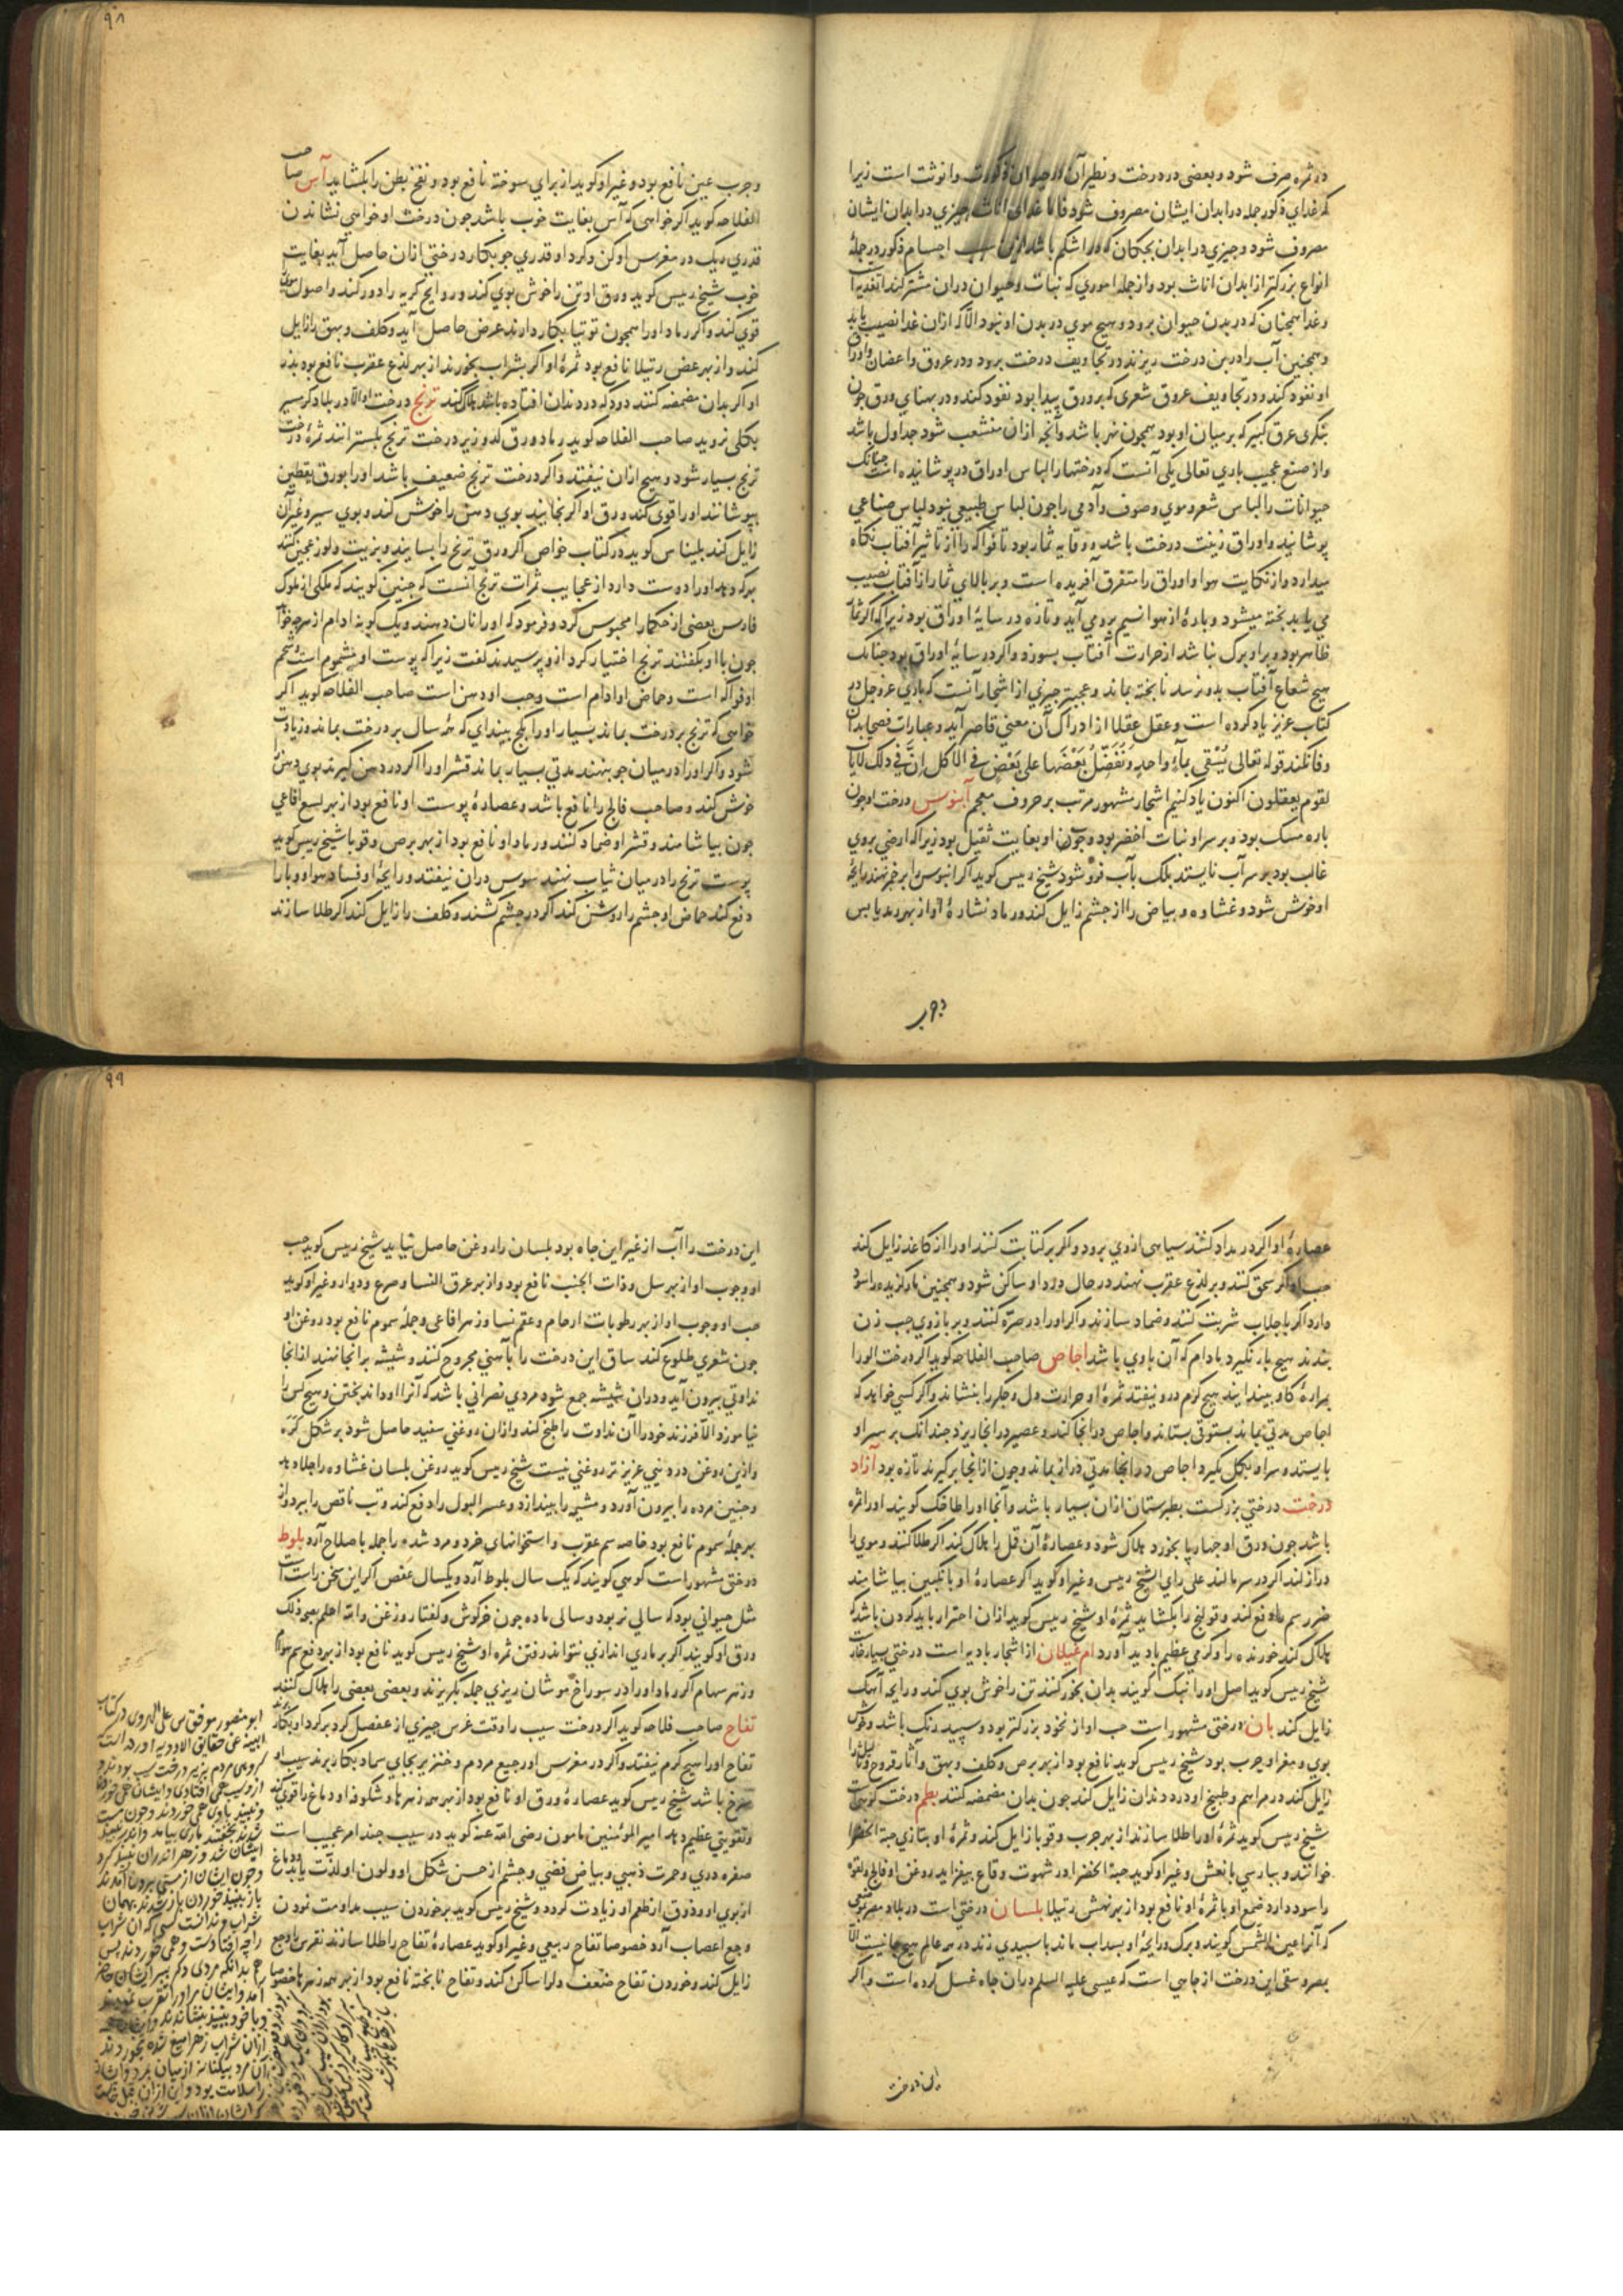 ۹۸
در ثمره صرف شود و بعضی در درخت و نظیر آن در حیوان ذکورت و انوثت است زیرا
که غدای ذکور جمله در ابدان ایشان مصروف شود فاما غدای اناث چیزی در ابدان ایشان
مصروف شود و چیزی در ابدان بچکان که در اشکم باشد ازین سبب اجسام ذکور در جملهٔ
انواع بزرکتر از ابدان اناث بود و از جمله اموری که نبات و حیوان دران مشترکند تغذیه است
و غدا همچنان که در بدن حیوان برود و هیچ موی در بدن او نبود الا که ازان غدا نصیب یابد
و همچنین آب را در بن درخت ریزند در تجاویف درخت برود و در عروق و اعضان و اوراق
او نفود کند و در تجاویف عروق شعری که بر ورق پیدا بود نفود کند و در بهنای ورق چون
بنکری عرق کبیر که بر میان او بود همچون نهر باشد و آنچه ازان منشعب شود جداول باشد
و از صنع عجیب باری تعالی یکی آنست که درختها را لباس اوراق در پوشانیده است چنانک
حیوانات را لباس شعر و موی و صوف و آدمی را چون لباس طبیعی نبود لباس صناعی
پوشانید و اوراق زینت درخت باشد و وقایه ثمار بود تا فواکه را از تاثیر آفتاب نکاه
میدارد و از نکایت هوا و اوراق را متفرق آفریده است و بر بالای ثمار از آفتاب نصیب
می یابد بخته میشود و بارهٔ از هوا نسیم برو می آید و تازه در سایهٔ اوراق بود زیرا که اکر ثمار
ظاهر بود و برو برک نباشد از حرارت آفتاب بسوزد و اکر در سایهٔ اوراق بود چنانک
هیچ شعاع آفتاب بدو نرسد نابخته بماند و عجبتر چیزی از اشجار آنست که باری عز و جل در
کتاب عزیز یاد کرده است و عقل عقلا از ادراک آن معنی قاصر آید و عبارات فصحا بدان
وفا نکند قوله تعالی یُسْقی بماءٍ واحدٍ وَنُفَضِّلُ بَعْضَها علی بَعْضٍ فی الاکل اِنَّ فی ذلک لآیات
لقوم یعقلون اکنون یاد کنیم اشجار مشهور مرتب بر حروف معجم آبنوس درخت او چون
باره مسک بود و بر سر او نبات اخضر بود و چون او بغایت ثقیل بود زیرا که ارضی بروی
غالب بود بر سر آب نایستد بلک بآب فرو شود شیخ رییس کوید اکر ابنوس را بر جمر نهند رایحهٔ
او خوش شود و غشاوه و بیاض را از چشم زایل کند و رماد نشارهٔ او از بهر رمد یابس
و جرب عین نافع بود و غیر او کوید از برای سوخته نافع بود و نفخ بطن را بکشاید آس صاحب
الفلاحه کوید اکر خواهی که آس بغایت خوب باشد چون درخت او خواهی نشاندن
قدری ریک در مغرس او کن و کرد او قدری جو بکار درختی ازان حاصل آید بغایت
خوب شیخ رییس کوید ورق او تن را خوش بوی کند و روایح کریه را دور کند و اصول موی
قوی کند و اکر رماد او را همچون توتیا بکار دارند عرض حاصل آید و کلف و بهق را زایل
کند و از بهر عض رتیلا نافع بود ثمرهٔ او اکر بشراب بخورند از بهر لذع عقرب نافع بود بذر
او اکر بدان مضمضه کنند دود که در دندان افتاده باشد هلاک کند ترنج درخت او الا در بلاد کرمسیر
بکلی نروید صاحب الفلاحه کوید رماد ورق کدو زیر درخت ترنج بکسترانند ثمرهٔ درخت
ترنج بسیار شود و هیچ ازان نیفتد و اکر درخت ترنج ضعیف باشد او را بورق یقطین
بپوشانند او را قوی کند ورق او اکر بخایند بوی دهن را خوش کند و بوی سیر و غیر آن
زایل کند بلیناس کوید در کتاب خواص اکر ورق ترنج را بسایند و بزیت و لوز عجین کنند
بهر که دهد او را دوست دارد از عجایب ثمرات ترنج آنست که چنین کویند که ملکی از ملوک
فارس بعضی از حکما را محبوس کرد و فرمود که او را نان دهند و یک کونه ادام از هرچه خواهد
چون با او بکفتند ترنج اختیار کرد ازو پرسیدند کفت زیرا که پوست او مشموم است و شحم
او فواکه است و حماض او ادام است و حب او دهن است صاحب الفلاحه کوید اکر
خواهی که ترنج بر درخت بماند بسیار او را بکچ بیندای که همهٔ سال بر درخت بماند و زیادت
شود و اکر او را در میان جو بنهند مدتی بسیار بماند قشر او را اکر در دهن کیرند بوی دهن
خوش کند و صاحب فالج را نافع باشد و عصارهٔ پوست او نافع بود از بهر لسع افاعی
چون بیاشامند و قشر او ضماد کنند و رماد او نافع بود از بهر برص و قوبا شیخ رییس کوید
پوست ترنج را در میان ثیاب نهند سوس دران نیفتد و رایحهٔ او فساد هوا و وبا را
دفع کند حماض او چشم را روشن کند اکر در چشم کشند و کلف را زایل کند اکر طلا سازند
و جرب
۹۹
عصارهٔ او اکر در مداد کنند سیاهی ازوی برود و اکر بر کتابت کنند او را از کاغذ زایل کند
حب او اکر سحق کنند و بر لذع عقرب نهند در حال درد او ساکن شود و همچنین مار کزیده را سود
دارد اکر با جلاب شربت کنند و ضماد سازند و اکر او را در صرّه کنند و بر بازوی چپ زن
بندند هیچ بار نکیرد مادام که آن باوی باشد اجاص صاحب الفلاحه کوید اکر درخت الورا
بمرارهٔ کاو بیندایند هیچ کرم درو نیفتد ثمرهٔ او حرارت دل و جکر را بنشاند و اکر کسی خواهد که
اجاص مدتی بماند بستوقی بستاند و اجاص در انجا کند و عصیر در انجا ریزد چندانک بر سر او
بایستد و سر او بکل بکیرد اجاص در انجا مدتی دراز بماند و چون از انجا بر کیرند تازه بود آزاد
درخت درختی بزرکست بطبرستان ازان بسیار باشد و آنجا او را طاخک کویند او را ثمره
باشد چون ورق او چهارپا بخورد هلاک شود و عصارهٔ آن قمل را هلاک کند اکر طلا کنند و موی را
دراز کند اکر در سر مالند علی رای الشیخ رییس و غیر او کوید اکر عصارهٔ او با نکبین بیاشامند
ضرر سم را دفع کند و قولنج را بکشاید ثمرهٔ او شیخ رییس کوید ازان احتراز باید کردن باشد که
هلاک کند خورنده را و کرمی عظیم بادید آورد ام غیلان از اشجار بادیه است درختی بسیار خار است
شیخ رییس کوید اصل او را نبک کویند بدان بخور کنند تن را خوش بوی کند و رایه آهک
زایل کند بان درختی مشهور است حب او از نخود بزرکتر بود و سپید رنک باشد و خوش
بوی و مغز او چرب بود شیخ رییس کوید نافع بود از بهر برص و کلف و بهق و آثار قروح و ثالیل را
زایل کند در مراهم و طبیخ او درد دندان زایل کند چون بدان مضمضه کنند بطم درخت کوهی است
شیخ رییس کوید ثمرهٔ او را طلا سازند از بهر جرب و قوبا زایل کند و ثمرهٔ او بتازی حبة الخضرا
خوانند و بپارسی بانعش و غیر او کوید حبة الخضرا در شهوت وقاع بیفزاید روغن او فالج و لقوه
را سود دارد صمغ او با ثمرهٔ او نافع بود از بهر نهش رتیلا بلسان درختی است در بلاد مصر بموضعی
که آنرا عین الشمس کویند و برک و رایحهٔ او بسداب ماند با سپیدی زند در همه عالم هیچ جا نیست الا
بمصر و سقی این درخت از چاهی است که عیسی علیه السلم دران چاه غسل کرده است و اکر
این درخت
این درخت را آب از غیر این چاه بود بلسان را روغن حاصل نیاید شیخ رییس کوید حب
او و چوب او از بهر سل و ذات الجنب نافع بود و از بهر عرق النسا و صرع و دوار و غیر او کوید
حب او و چوب او از بهر رطوبات ارحام و عقم نسا و زهر افاعی و جملهٔ سموم نافع بود روغن او
چون شعری طلوع کند ساق این درخت را بآهنی مجروح کنند و شیشه بر انجا نهند از انجا
نداوتی بیرون آید و دران شیشه جمع شود مردی نصرانی باشد که آنرا او داند بختن و هیچ کس را
نیاموزد الا فرزند خود را آن نداوت را طبخ کند و ازان روغنی سفید حاصل شود بر شکل کره
و ازین روغن در دنیی عزیز تر روغنی نیست شیخ رییس کوید روغن بلسان غشاوه را جلا دهد
و جنین مرده را بیرون آورد و مشیمه را بیندازد و عسر البول را دفع کند و تب ناقص را ببرد و از
بهر جملهٔ سموم نافع بود خاصه سم عقرب و استخوانهای خرد و مرد شده را جمله باصلاح آرد بلوط
درختی مشهور است کوهی کویند که یک سال بلوط آرد و یکسال عفص اکر این سخن راست است
مثل حیوانی بود که سالی نر بود و سالی ماده چون خرکوش و کفتار و زغن والله اعلم بصحة ذلک
ورق او کویند اکر بر ماری اندازی نتواند رفتن ثمره او شیخ رییس کوید نافع بود از بهر دفع سم هوام
و زهر سهام اکر رماد او را در سوراخ موشان ریزی جمله بکریزند و بعضی بعضی را هلاک کنند
تفاح صاحب فلاحه کوید اکر درخت سیب را وقت غرس چیزی از عفصل کرد بر کرد او بکارند
تفاح او را هیچ کرم نیفتد و اکر در مغرس او رجیع مردم و خنزیر بجای سماد بکار برند سیب او
سرخ باشد شیخ رییس کوید عصارهٔ ورق او نافع بود از بهر همه زهرها و شکوفهٔ او دماغ را قوی کند
و تقویتی عظیم دهد امیر المؤمنین مامون رضی الله عنه کوید در سیب چند امر عجیب است
صفره دری و حمرت ذهبی و بیاض فضی و چشم از حسن شکل او و لون او لذت یابد و دماغ
از بوی او و ذوق از طعم او زیادت کردد و شیخ رییس کوید بر خوردن سیب مداومت نمودن
وجع اعصاب آرد خصوصا تفاح ربیعی و غیر او کوید عصارهٔ تفاح را طلا سازند نقرس را و وجع
زایل کند و خوردن تفاح ضعف دل را ساکن کند و تفاح نابخته نافع بود از بهر همه زهرها خصوصا
ابو منصور موفق بن علی الهروی در کتاب
ابنیه عن حقایق الادویه آورده است
کروهی مردم بزیر درخت سیب بودند و
ازو سیب همی افتادی و ایشان همی خوردند